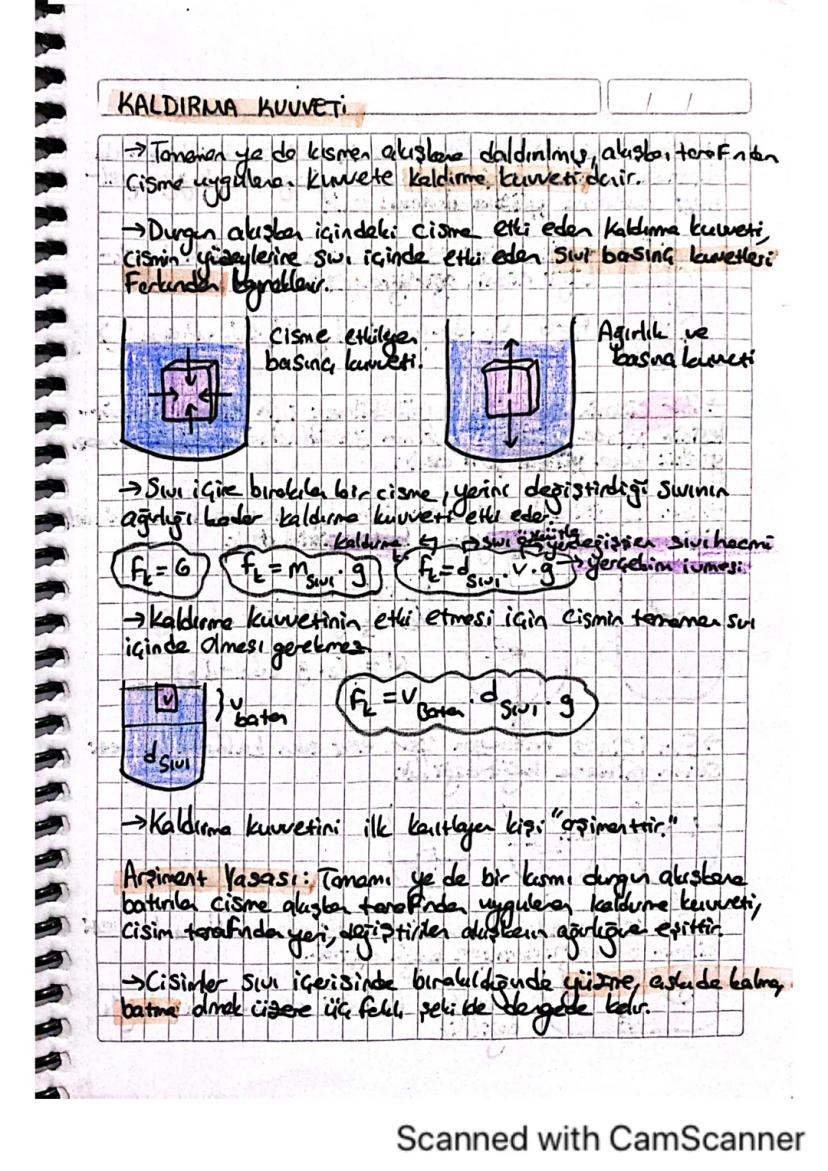 KALDIRMA KUVVETİ
/ /
→ Tamamen ya da kısmen akışkana daldırılmış, akışkan tarafından
cisme uygulanan kuvvete kaldırma kuvveti denir.
→ Durgun akışkan içindeki cisme etki eden kaldırma kuvveti,
cismin yüzeylerine sıvı içinde etki eden sıvı basınç kuvvetleri
farkından kaynaklanır.
Cisme etkiyen
basınç kuvveti.
Ağırlık ve
basınç kuvveti
→ Sıvı içine bırakılan bir cisme, yerini değiştirdiği sıvının
ağırlığı kadar kaldırma kuvveti etki eder.
kaldırma
sıvı
yer değişen sıvı hacmi
Fk = G
Fk = msıvı . g
Fk = dsıvı . V . g → yerçekim ivmesi
→ Kaldırma kuvvetinin etki etmesi için cismin tamamen sıvı
içinde olması gerekmez.
V
} Vbatan
dsıvı
Fk = VBatan . dsıvı . g
→ Kaldırma kuvvetini ilk kanıtlayan kişi "arşimenttir."
Arşiment Yasası: Tamamı ya da bir kısmı durgun akışkana
batırılan cisme akışkan tarafından uygulanan kaldırma kuvveti,
cisim tarafından yeri değiştirilen akışkanın ağırlığına eşittir.
→ Cisimler sıvı içerisinde bırakıldığında yüzme, askıda kalma,
batma olmak üzere üç farklı şekilde dengede kalır.
Scanned with CamScanner